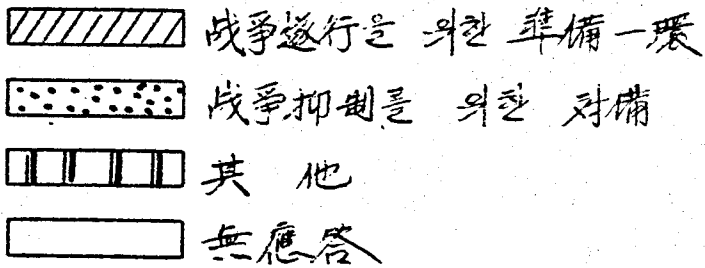 战爭遂行을 위한 準備一環
战爭抑制를 위한 対備
其他
無應答